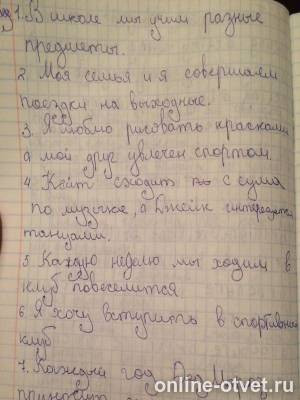 1. В школе мы учим разные
предметы.
2 Моя семья и я совершаем
поездки на выходные.
3. Я люблю рисовать красками
а мой друг увлечен спортом.
4 Кейт сходит с сума
по музыке, а Джейк интересуется
танцами.
5. Каждую неделю мы ходим в
клуб повеселится.
6 Я хочу вступить в спортивный
клуб
7. Каждый год Дед Мороз
приносит
online-otvet.ru